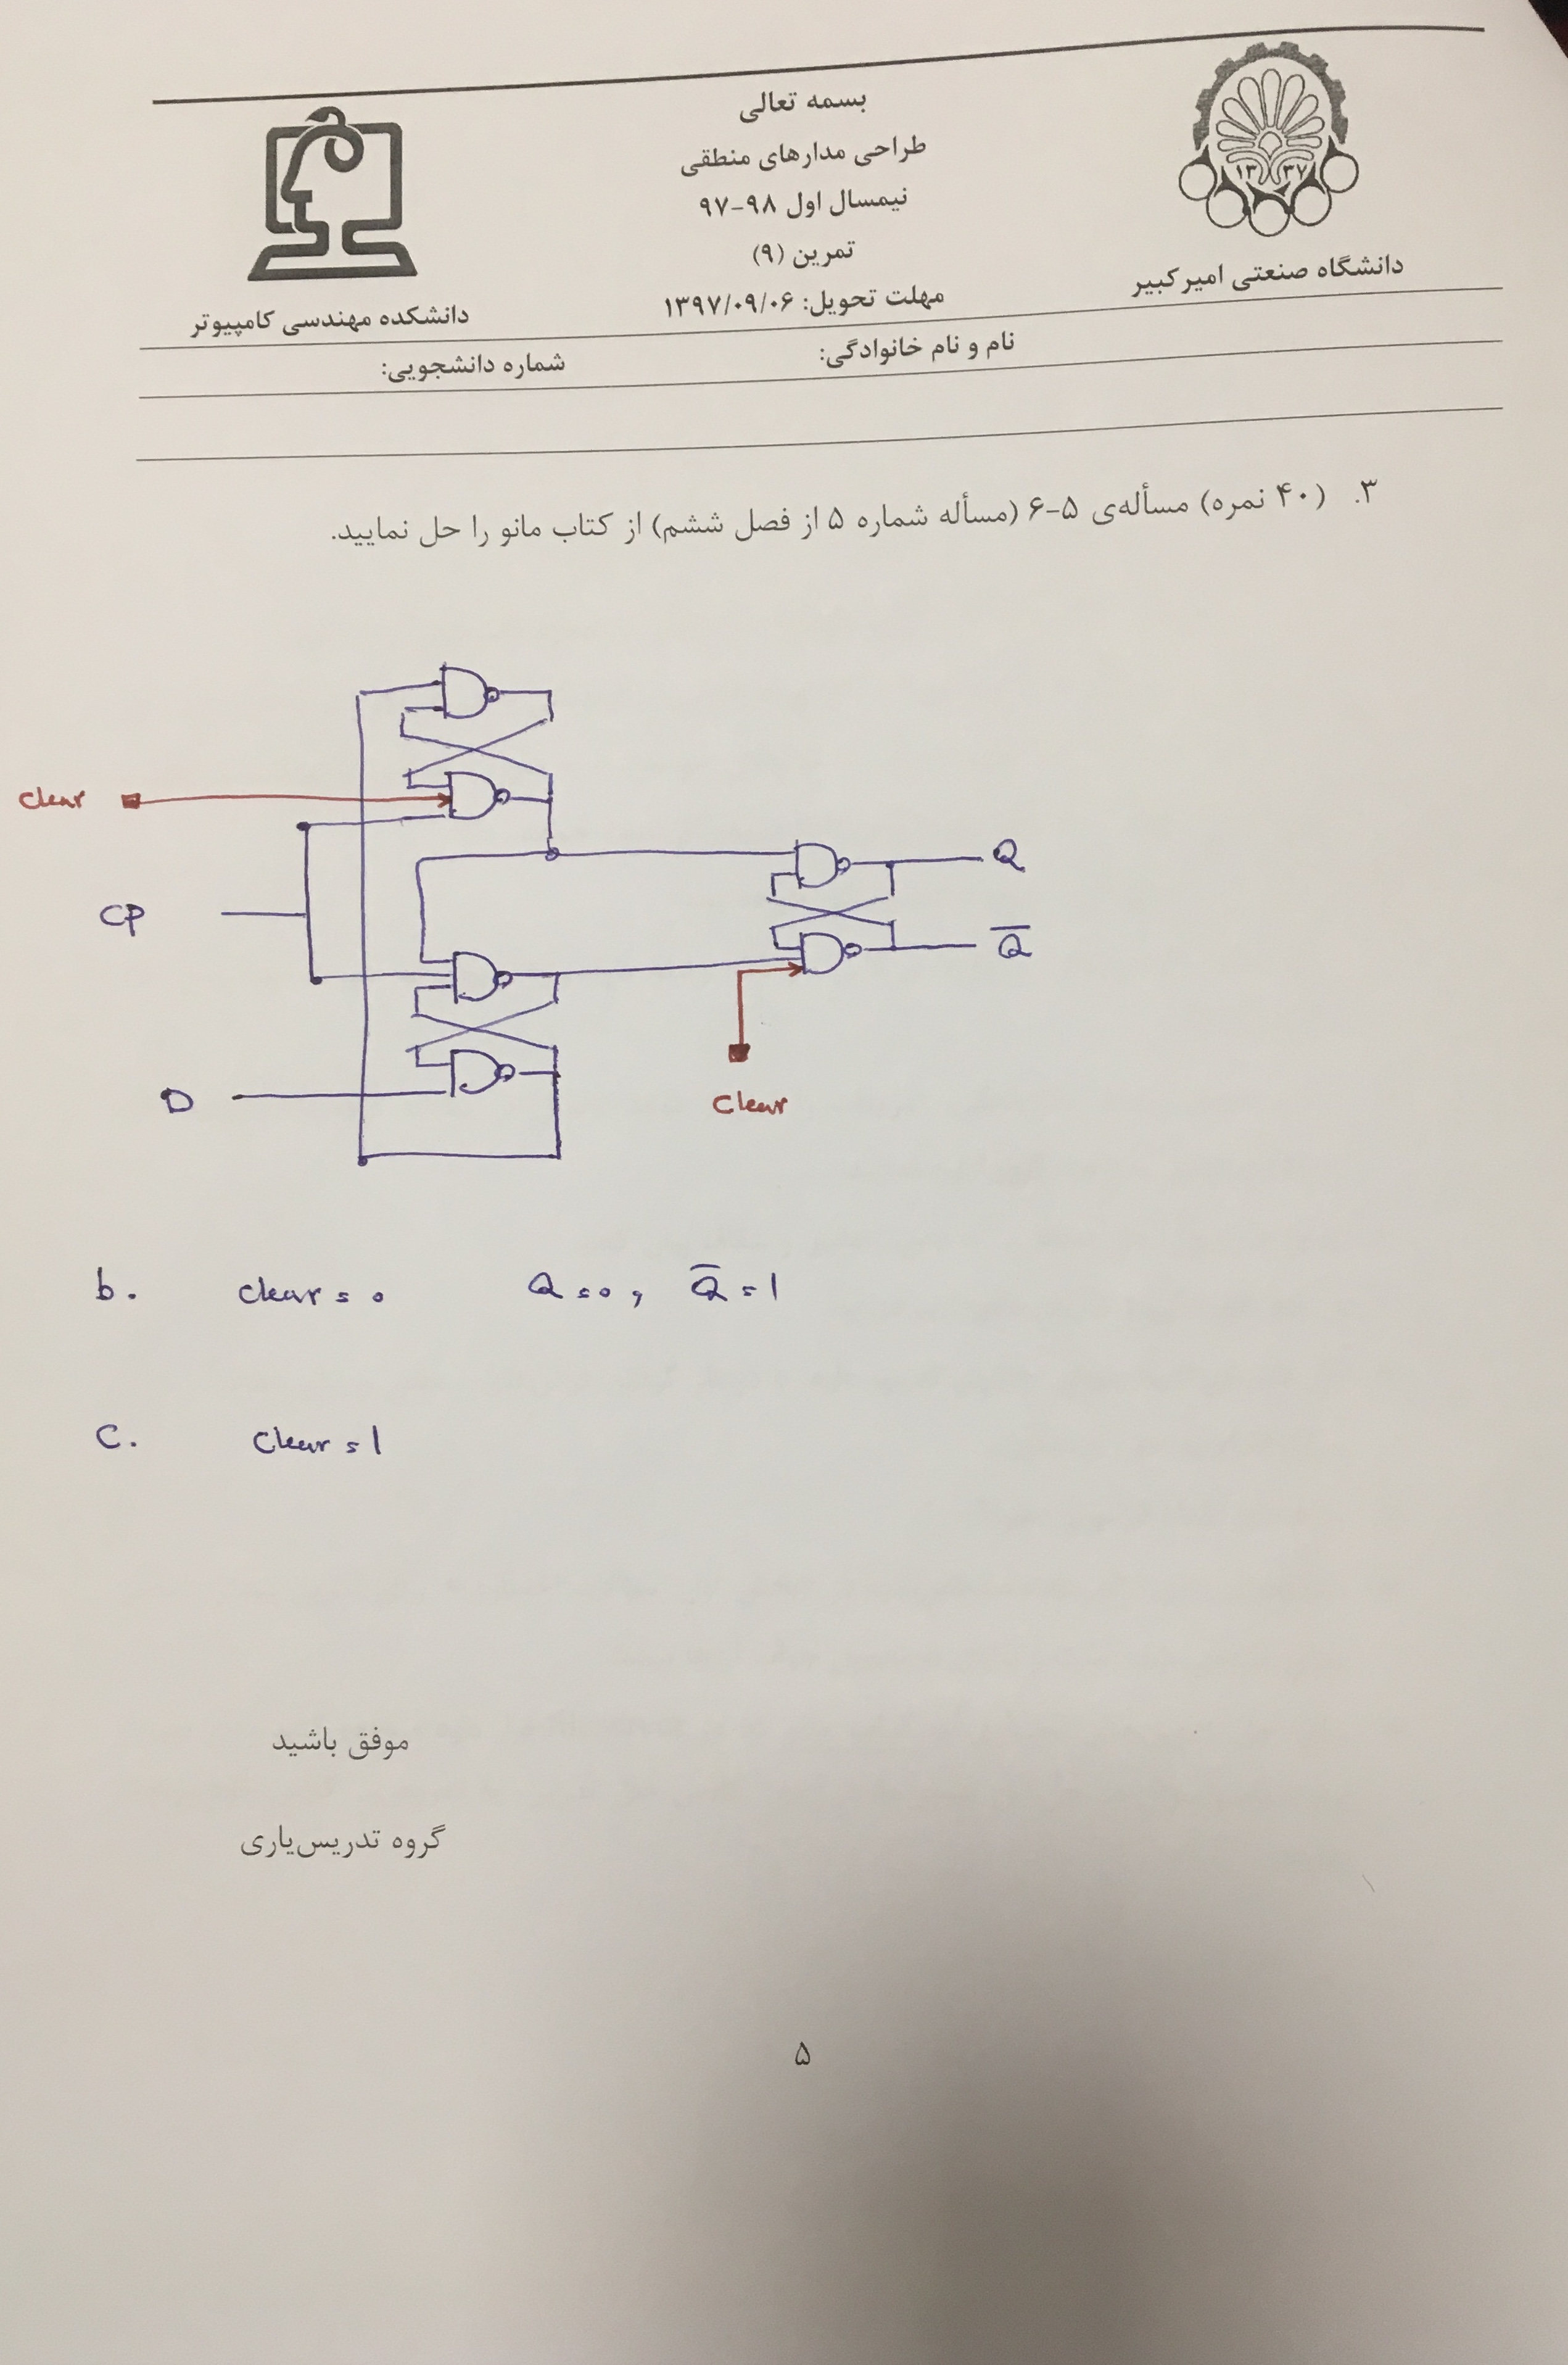 بسمه تعالی
طراحی مدارهای منطقی
نیمسال اول ۹۸-۹۷
تمرین (۹)
مهلت تحویل: ۱۳۹۷/۰۹/۰۶
۱۳ ۳۷
دانشگاه صنعتی امیرکبیر
دانشکده مهندسی کامپیوتر
نام و نام خانوادگی:
شماره دانشجویی:
۳. (۴۰ نمره) مسأله‌ی ۵-۶ (مسأله شماره ۵ از فصل ششم) از کتاب مانو را حل نمایید.
Clear
CP
D
Q
Q̅
Clear
b. Clear = 0 Q=0, Q̅=1
C. Clear = 1
موفق باشید
گروه تدریس‌یاری
۵